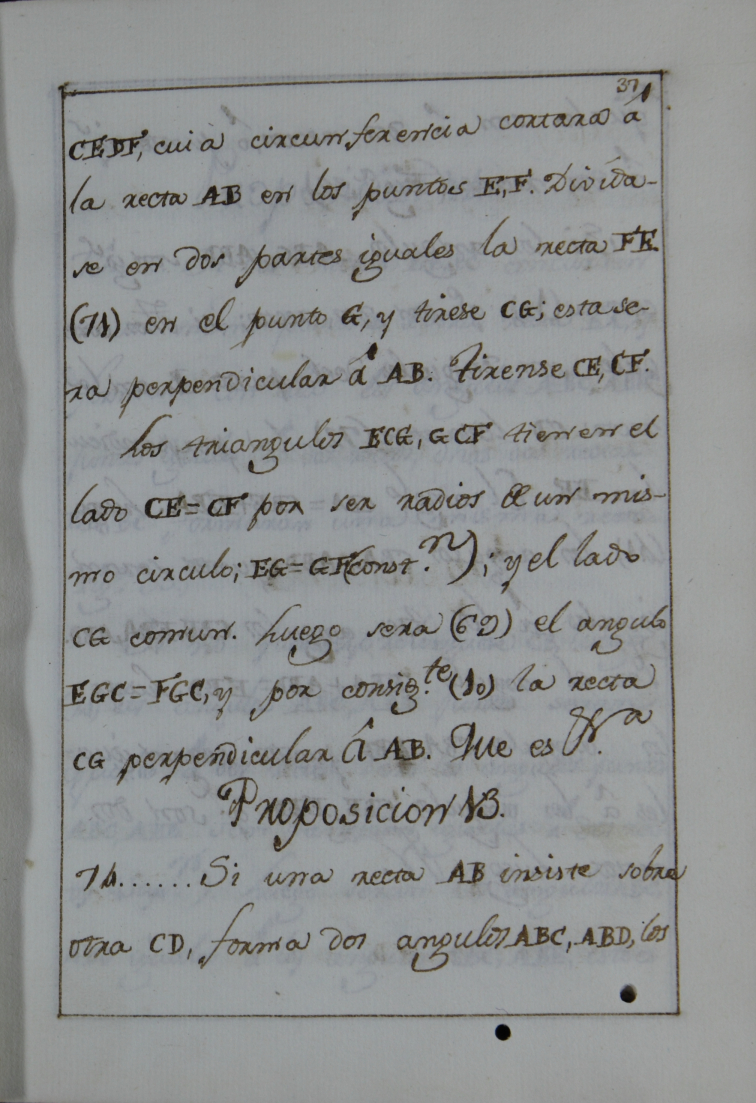 37
CEDF, cuia circunferencia cortara á
la recta AB en los puntos E, F. Divida-
se en dos partes iguales la recta FE
(71) en el punto G, y tirese CG; esta se-
ra perpendicular â AB. Tirense CE, CF.
Los triangulos ECG, GCF tienen el
lado CE=CF por ser radios de un mis-
mo circulo; EG=GF (const.n); y el lado
CG comun. Luego sera (62) el angulo
EGC=FGC, y por consig.te (10) la recta
CG perpendicular â AB. Que es
Proposicion 13.
74......Si una recta AB insiste sobre
otra CD, forma dos angulos ABC, ABD, los